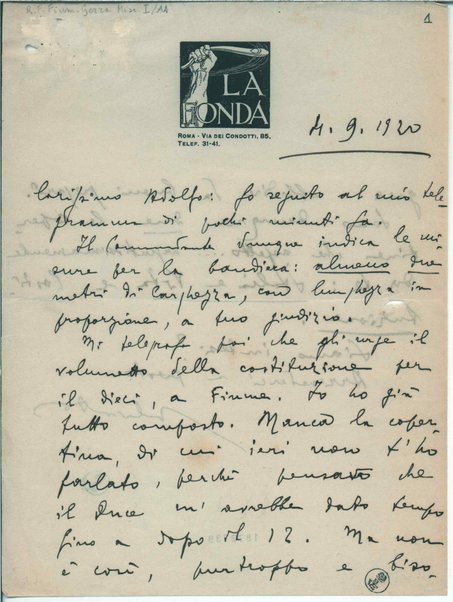 R.F. Fium. Gozza Misc. I/11
1
LA
FIONDA
ROMA - VIA DEI CONDOTTI, 85.
TELEF. 31-41.
4. 9. 1920
Carissimo Adolfo: fo seguito al mio tele-
gramma di pochi minuti fa.
Il Comandante dunque indica le mi
sure per la bandiera: almeno due
metri di larghezza, con lunghezza in
proporzione, a tuo giudizio.
Mi telegrafa poi che gli urge il
volumetto della costituzione per
il dieci, a Fiume. Io ho già
tutto composto. Manca la coper-
tina, di cui ieri non t'ho
parlato, perchè pensavo che
il Duce m'avrebbe dato tempo
fino a dopo il 12. Ma non
è così, purtroppo e biso-